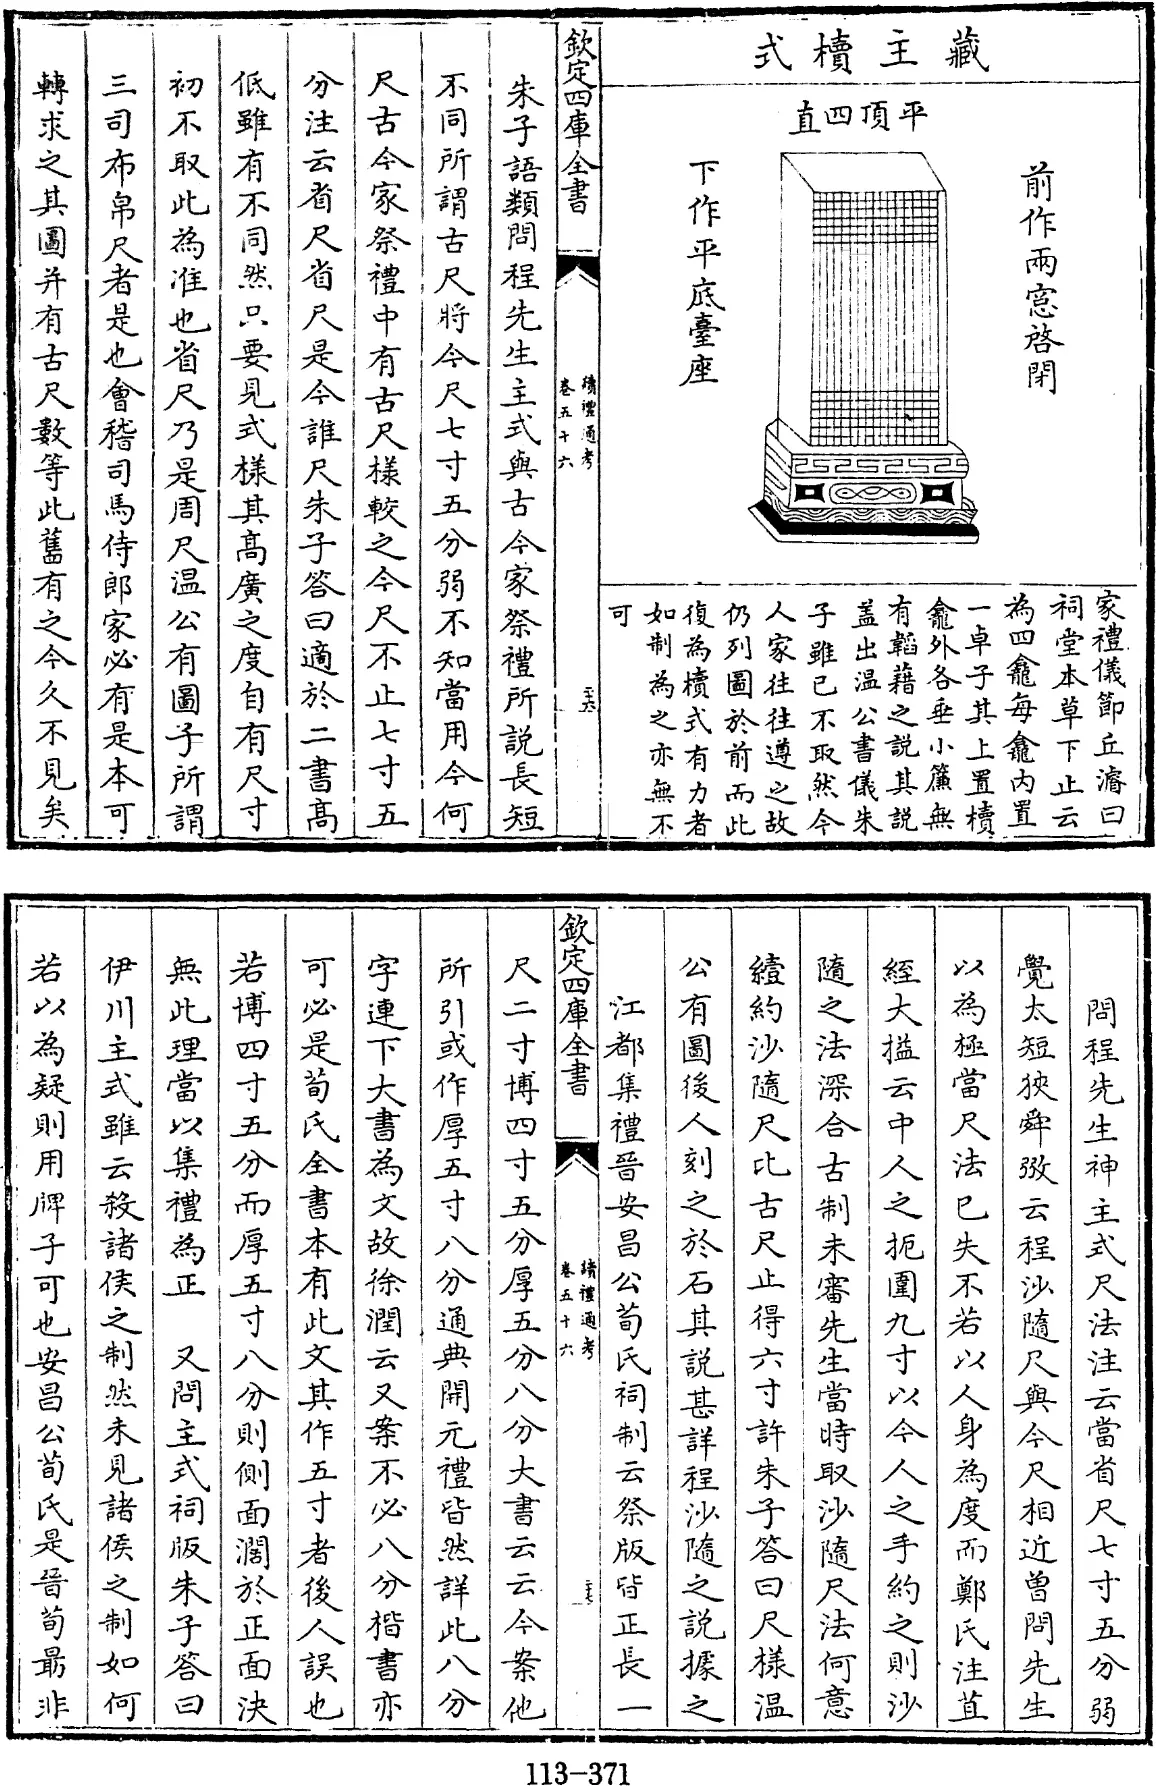 藏主櫝式
平頂四直
前作兩窓啓閉
下作平底臺座
家禮儀節丘濬曰
祠堂本草下止云
為四龕每龕内置
一卓子其上置櫝
龕外各垂小簾無
有韜藉之說其說
盖出温公書儀朱
子雖已不取然今
人家往往遵之故
仍列圖於前而此
復為櫝式有力者
如制為之亦無不
可
欽定四庫全書
讀禮通考
卷五十六
二十六
朱子語類問程先生主式與古今家祭禮所說長短
不同所謂古尺將今尺七寸五分弱不知當用今何
尺古今家祭禮中有古尺樣較之今尺不止七寸五
分注云省尺省尺是今誰尺朱子答曰適於二書高
低雖有不同然只要見式樣其高廣之度自有尺寸
初不取此為准也省尺乃是周尺温公有圖子所謂
三司布帛尺者是也會稽司馬侍郎家必有是本可
轉求之其圖并有古尺數等此舊有之今久不見矣
問程先生神主式尺法注云當省尺七寸五分弱
覺太短狹舜弼云程沙隨尺與今尺相近曽問先生
以為極當尺法已失不若以人身為度而鄭氏注苴
絰大搤云中人之扼圍九寸以今人之手約之則沙
隨之法深合古制未審先生當時取沙隨尺法何意
續約沙隨尺比古尺止得六寸許朱子答曰尺樣温
公有圖後人刻之於石其說甚詳程沙隨之說據之
江都集禮晉安昌公荀氏祠制云祭版皆正長一
欽定四庫全書
讀禮通考
卷五十六
二十七
尺二寸博四寸五分厚五分八分大書云云今案他
所引或作厚五寸八分通典開元禮皆然詳此八分
字連下大書為文故徐潤云又案不必八分楷書亦
可必是荀氏全書本有此文其作五寸者後人誤也
若博四寸五分而厚五寸八分則側面濶於正面決
無此理當以集禮為正　又問主式祠版朱子答曰
伊川主式雖云殺諸侯之制然未見諸侯之制如何
若以為疑則用牌子可也安昌公荀氏是晉荀朂非
113-371